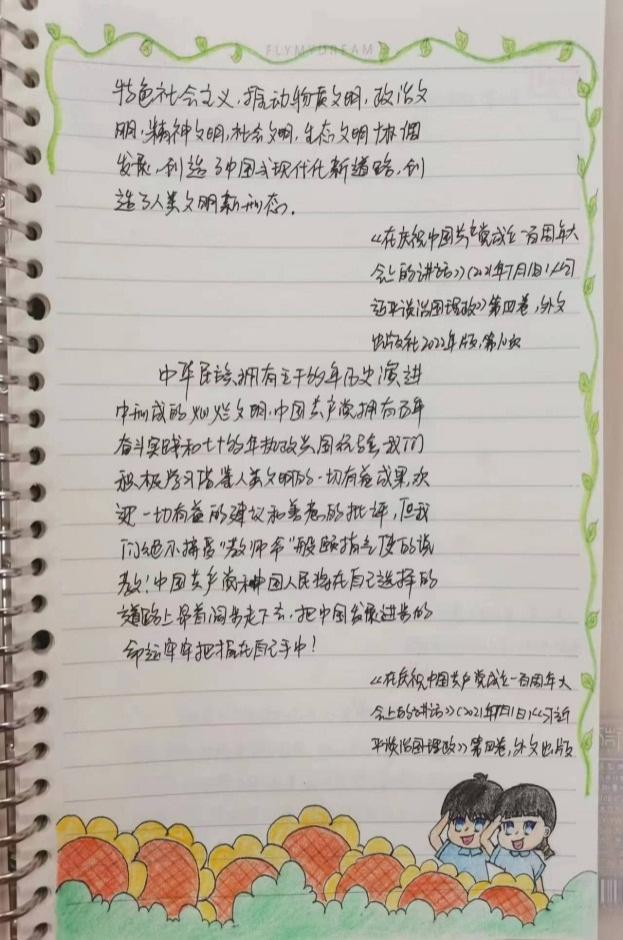 FLYMYDREAM
特色社会主义，推动物质文明，政治文
明，精神文明，社会文明，生态文明协调
发展，创造了中国式现代化新道路，创
造了人类文明新形态。
《在庆祝中国共产党成立一百周年大
会上的讲话》（2021年7月1日）《习
近平谈治国理政》第四卷，外文
出版社2022年版，第10页
中华民族拥有五千多年历史演进
中形成的灿烂文明，中国共产党拥有百年
奋斗实践和七十多年执政兴国经验，我们
积极学习借鉴人类文明的一切有益成果，欢
迎一切有益的建议和善意的批评，但我
们绝不接受“教师爷”般颐指气使的说
教！中国共产党和中国人民将在自己选择的
道路上昂首阔步走下去，把中国发展进步的
命运牢牢把握在自己手中！
《在庆祝中国共产党成立一百周年大
会上的讲话》（2021年7月1日）《习近
平谈治国理政》第四卷，外文出版